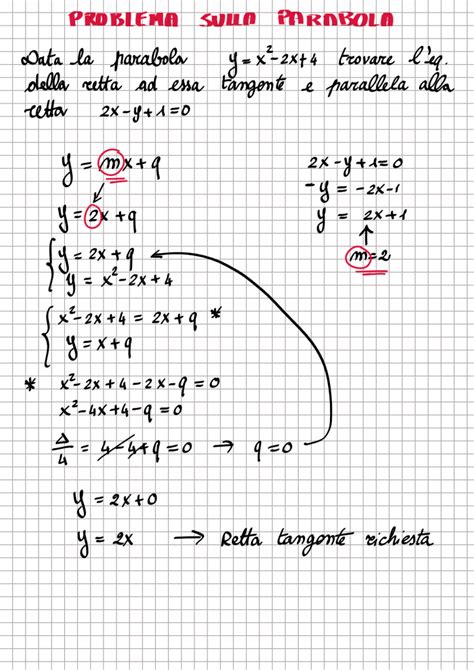 PROBLEMA SULLA PARABOLA
Data la parabola y = x²-2x+4 trovare l'eq.
della retta ad essa tangente e parallela alla
retta 2x-y+1=0
y = mx+q
y = 2x+q
y = 2x+q
y = x²-2x+4
x²-2x+4 = 2x+q *
y = x+q
* x²-2x+4-2x-q=0
x²-4x+4-q=0
Δ/4 = 4-4+q=0 → q=0
y = 2x+0
y = 2x → Retta tangente richiesta
2x-y+1=0
-y = -2x-1
y = 2x+1
m=2